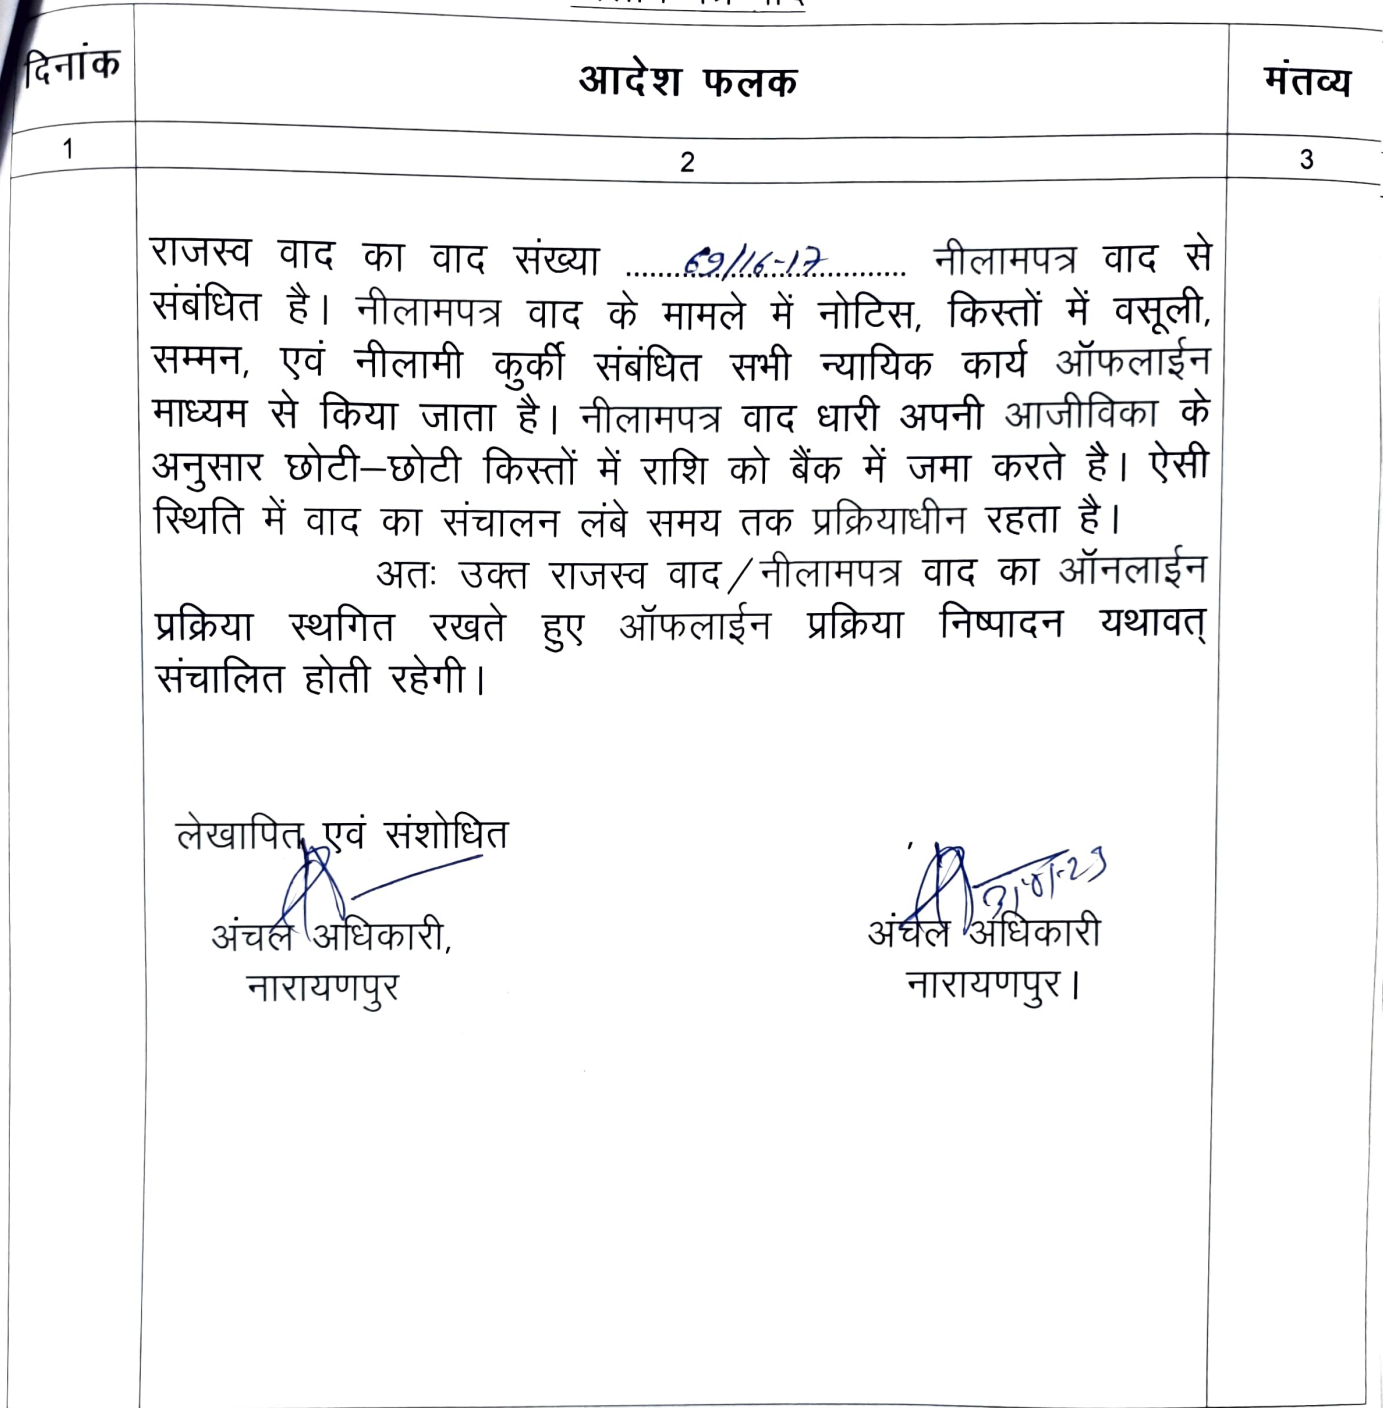 दिनांक आदेश फलक मंतव्य
1 2 3
राजस्व वाद का वाद संख्या ..........69/16-17.......... नीलामपत्र वाद से
संबंधित है। नीलामपत्र वाद के मामले में नोटिस, किस्तों में वसूली,
सम्मन, एवं नीलामी कुर्की संबंधित सभी न्यायिक कार्य ऑफलाईन
माध्यम से किया जाता है। नीलामपत्र वाद धारी अपनी आजीविका के
अनुसार छोटी–छोटी किस्तों में राशि को बैंक में जमा करते है। ऐसी
स्थिति में वाद का संचालन लंबे समय तक प्रक्रियाधीन रहता है।
अतः उक्त राजस्व वाद/नीलामपत्र वाद का ऑनलाईन
प्रक्रिया स्थगित रखते हुए ऑफलाईन प्रक्रिया निष्पादन यथावत्
संचालित होती रहेगी।
लेखापित एवं संशोधित
31-01-23
अंचल अधिकारी, अंचल अधिकारी
नारायणपुर नारायणपुर।